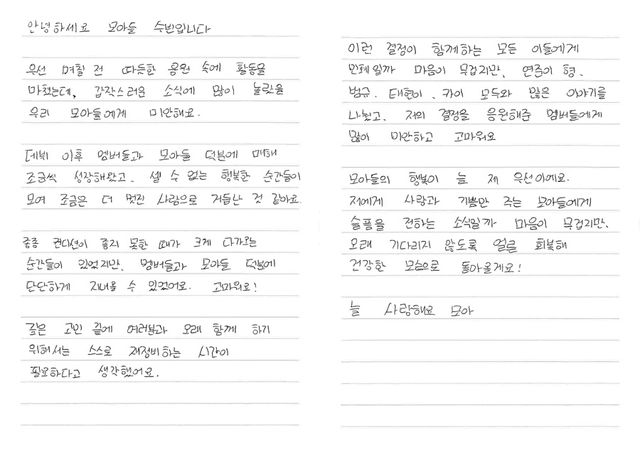 안녕하세요 모아들 수빈입니다
우선 며칠 전 따뜻한 응원 속에 활동을
마쳤는데, 갑작스러운 소식에 많이 놀랐을
우리 모아들에게 미안해요.
데뷔 이후 멤버들과 모아들 덕분에 매해
조금씩 성장해왔고, 셀 수 없는 행복한 순간들이
모여 조금은 더 멋진 사람으로 거듭난 것 같아요.
종종 컨디션이 좋지 못한 때가 크게 다가오는
순간들이 있었지만, 멤버들과 모아들 덕분에
단단하게 지내올 수 있었어요. 고마워요!
깊은 고민 끝에 여러분과 오래 함께 하기
위해서는 스스로 재정비하는 시간이
필요하다고 생각했어요.
이런 결정이 함께하는 모든 이들에게
민폐일까 마음이 무겁지만, 연준이 형,
범규, 태현이, 카이 모두와 많은 이야기를
나눴고, 저의 결정을 응원해준 멤버들에게
많이 미안하고 고마워요
모아들의 행복이 늘 제 우선이에요.
저에게 사랑과 기쁨만 주는 모아들에게
슬픔을 전하는 소식일까 마음이 무겁지만,
오래 기다리지 않도록 얼른 회복해
건강한 모습으로 돌아올게요!
늘 사랑해요 모아